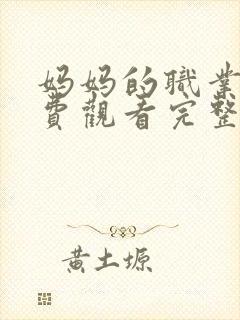 妈妈的職業
費觀看完整
黄土塬